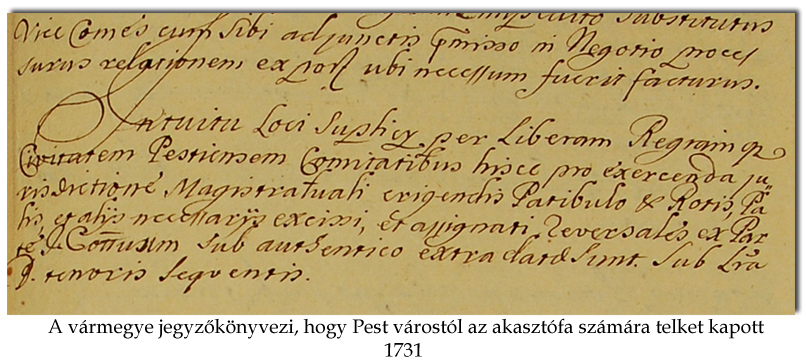 Vice Comes cum sibi adjunctis p̃misso in Negotio proces
surus relationem ex post ubi necessum fuerit facturus.
Intuitu Loci Supplicij per Liberam Regiam q̃
Civitatem Pestiensem Comitatibus hisce pro exercenda ju
risdictione Magistratuali erigendis Patibulo & Rotis, Pa
lis, et alijs necessarijs excissi, et assignati Reversales, ex Par
te I. Cottuum sub authentico extra datæ sunt. Sub Lr̃a
tenoris sequentis.
A vármegye jegyzőkönyvezi, hogy Pest várostól az akasztófa számára telket kapott
1731